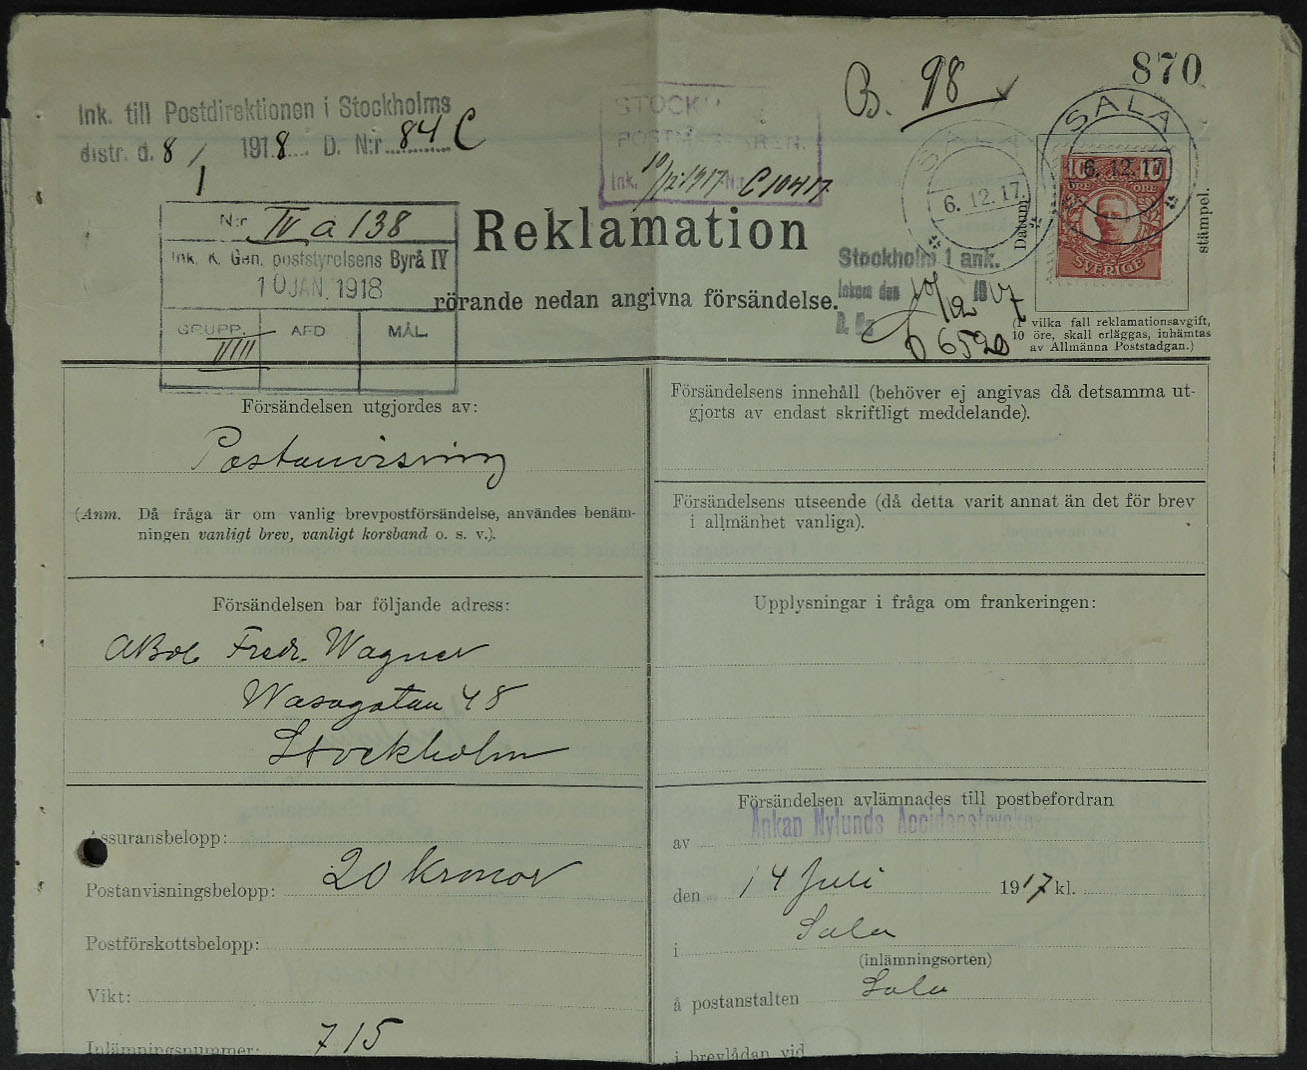 870
B. 98
Ink. till Postdirektionen i Stockholms
distr. d. 8/1 1918. D. N:r 84 C
STOCK
POSTM
Ink. 10/12 1917 N:r C 10417.
SALA
6.12.17
SALA
6.12.17
10 10
ÖRE ÖRE
SVERIGE
Datum-
stämpel.
N:r IV a 138
Ink. K. Gen. poststyrelsens Byrå IV
10 JAN. 1918
GRUPP. AFD MÅL.
Reklamation
rörande nedan angivna försändelse.
Stockholm 1 ank.
Inkom den 10/12 1917
D. 6520
(I vilka fall reklamationsavgift,
10 öre, skall erläggas, inhämtas
av Allmänna Poststadgan.)
Försändelsen utgjordes av:
Postanvisning
(Anm. Då fråga är om vanlig brevpostförsändelse, användes benäm-
ningen vanligt brev, vanligt korsband o. s. v.).
Försändelsen bar följande adress:
Fredr. Wagner
Wasagatan 48
Stockholm
Assuransbelopp:
Postanvisningsbelopp: 20 kronor
Postförskottsbelopp:
Vikt:
Inlämningsnummer: 715
Försändelsens innehåll (behöver ej angivas då detsamma ut-
gjorts av endast skriftligt meddelande).
Försändelsens utseende (då detta varit annat än det för brev
i allmänhet vanliga).
Upplysningar i fråga om frankeringen:
Försändelsen avlämnades till postbefordran
av Ankan Nylunds Accidenstryckeri
den 14 Juli 1917 kl.
i Sala
(inlämningsorten)
å postanstalten Sala
i brevlådan vid